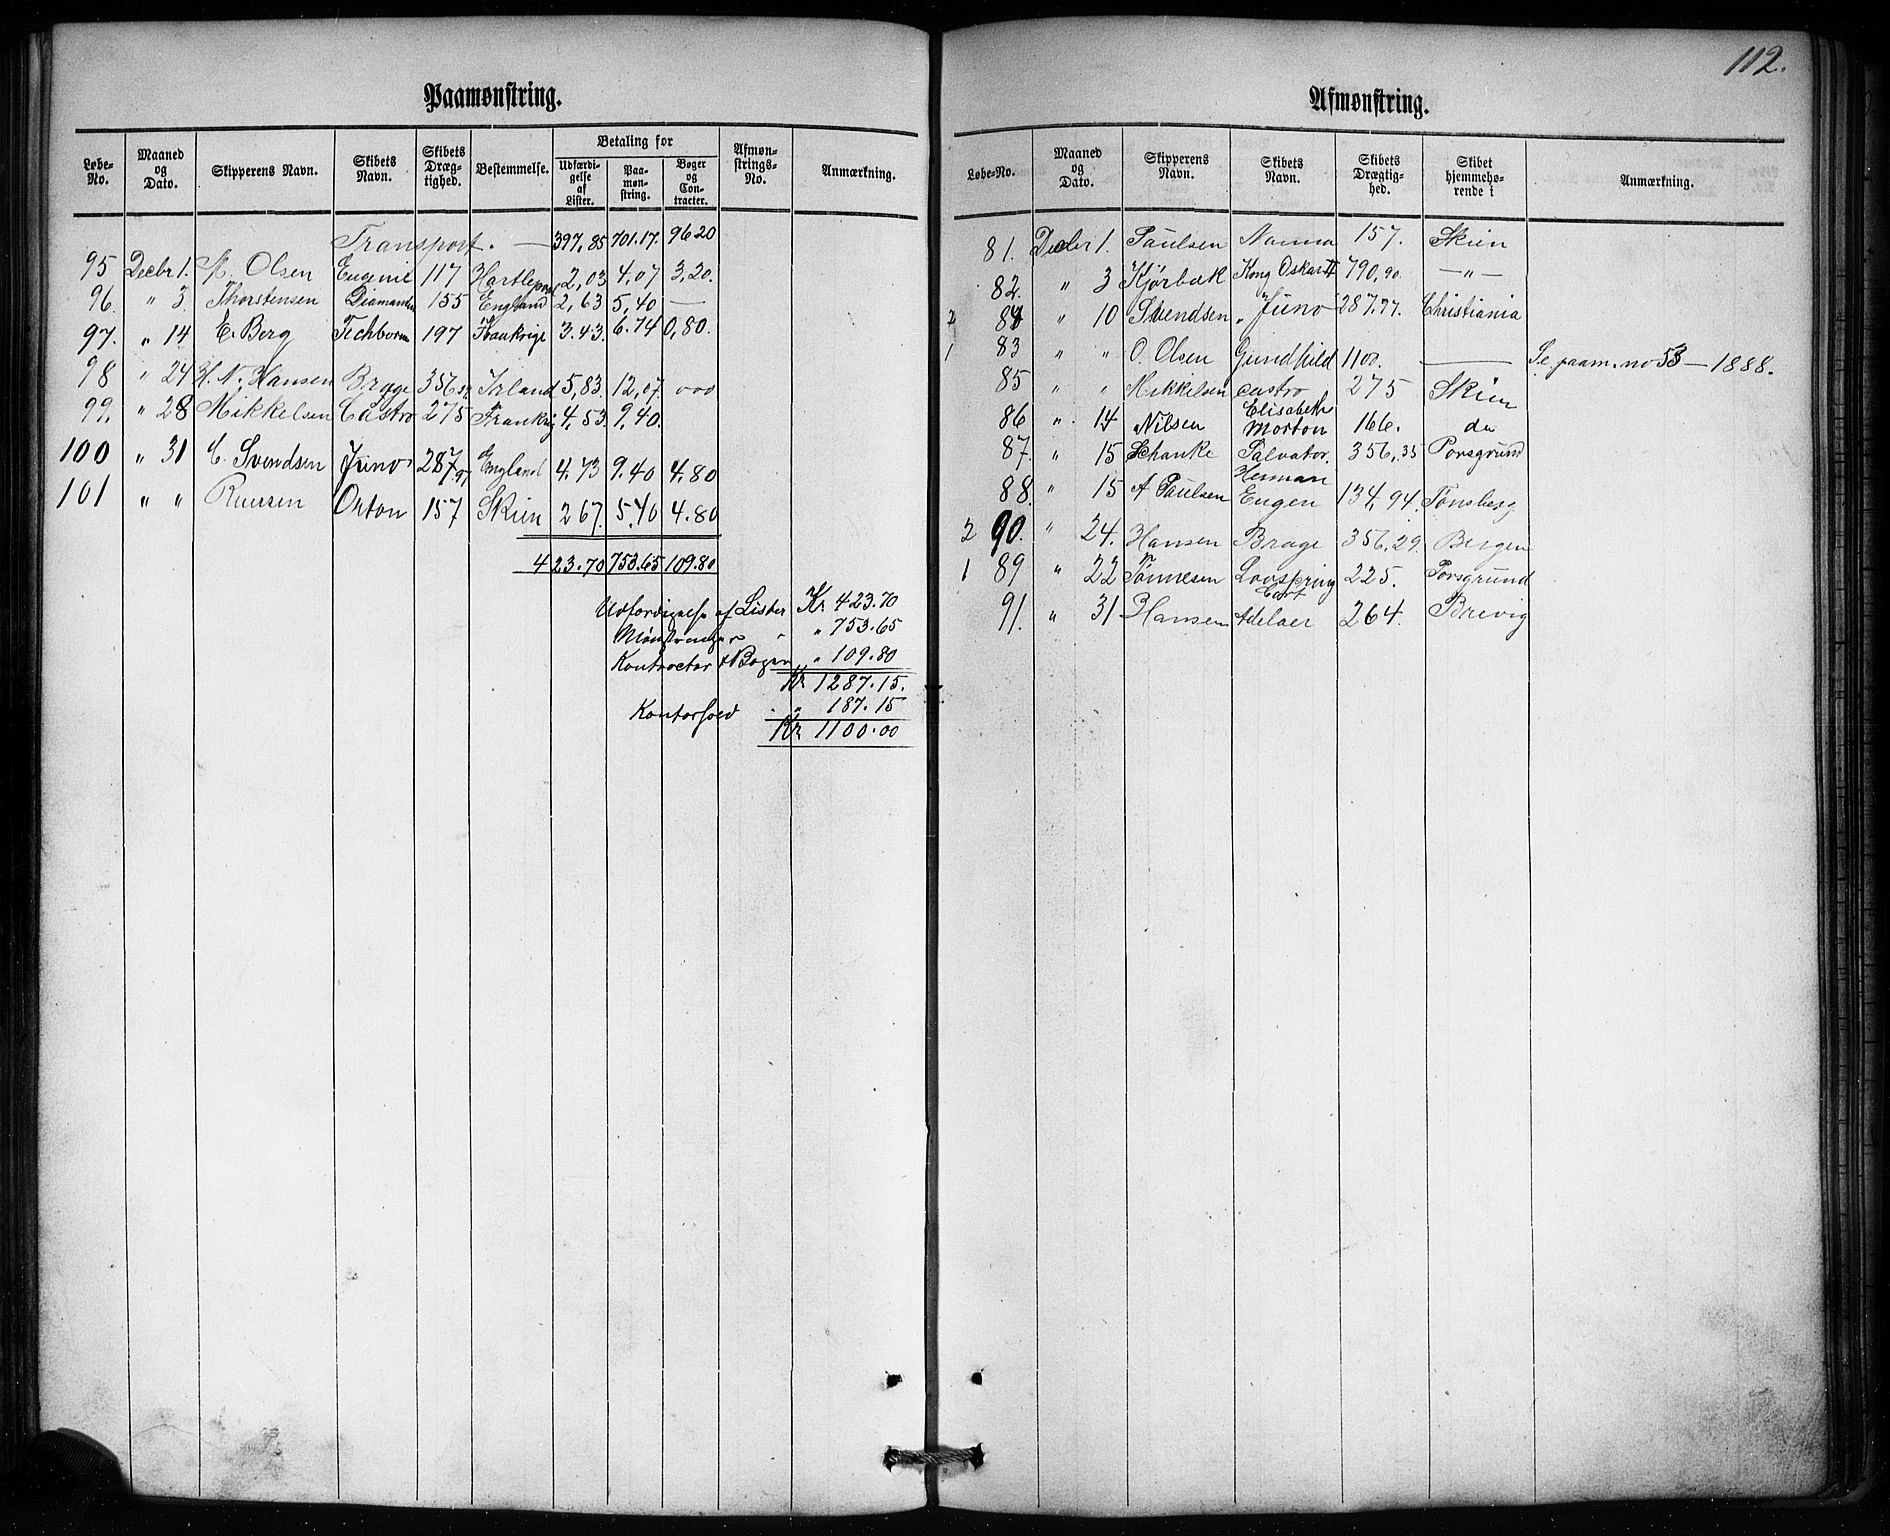 112.
Paamønstring.
Løbe-No. Maaned og Dato. Skipperens Navn. Skibets Navn. Skibets Dræg-tighed. Bestemmelse. Betaling for Udfærdi-gelse af Lister. Paa-møn-string. Bøger og Con-tracter. Afmøn-strings-No. Anmærkning.
Transport. — 397,85 701.17. 9620
95 Decbr 1. M. Olsen Eugenie 117 Hartlepool 2,03 4,07 3,20.
96. " 3. Thorstensen Diamanten 155 England 2,63 5,40 —
97. " 14 E. Berg Techborn 197 Frankrige 3.43. 6.74 0,80.
98 " 24 H. N. Hansen Brage 356,29 Irland 5,83. 12,07. ooo
99. " 28 Mikkelsen Castro 275 Frankrig 4,53. 9,40.
100 " 31 C. Svendsen Juno 287,97 England 4.73 9.40 4,80
101 " " Orton 157 Skien 2 67. 5,40 4.80
423.70 753.65 109.80
Udfærdigelse af Lister Kr 423.70
Mønstringer " " 753.65
Kontracter & Bøger " 109.80
Kr 1287.15.
Kontorhold " 187.15
Kr 1100.00
Afmønstring.
Løbe-No. Maaned og Dato. Skipperens Navn. Skibets Navn. Skibets Drægtig-hed. Skibet hjemmehø-rende i Anmærkning.
81. Decbr 1. Paulsen Nanna 157. Skien
82. " 3 Kjørbæk Kong Oskar II 790,90. — " —
2 84 " 10 Svendsen " Juno 287,97. Christiania
1 83 " " O. Olsen Gundhild 1100. — Se paam. no 53 — 1888.
85 " " Mikkelsen Castro 275 Skien
86 " 14 Nilsen Elisabeth Morton 166. do
87. " 15 Schanke Salvator. 356,35 Porsgrund
88. " 15 A Paulsen Herman Eugen 134,94. Tønsberg
2 90. " 24. Hansen Brage 356,29. Bergen
1 89 " 22 Tønnesen Lovspring 225. Porsgrund
91. " 31 Hansen Adelaer 264. Brevig